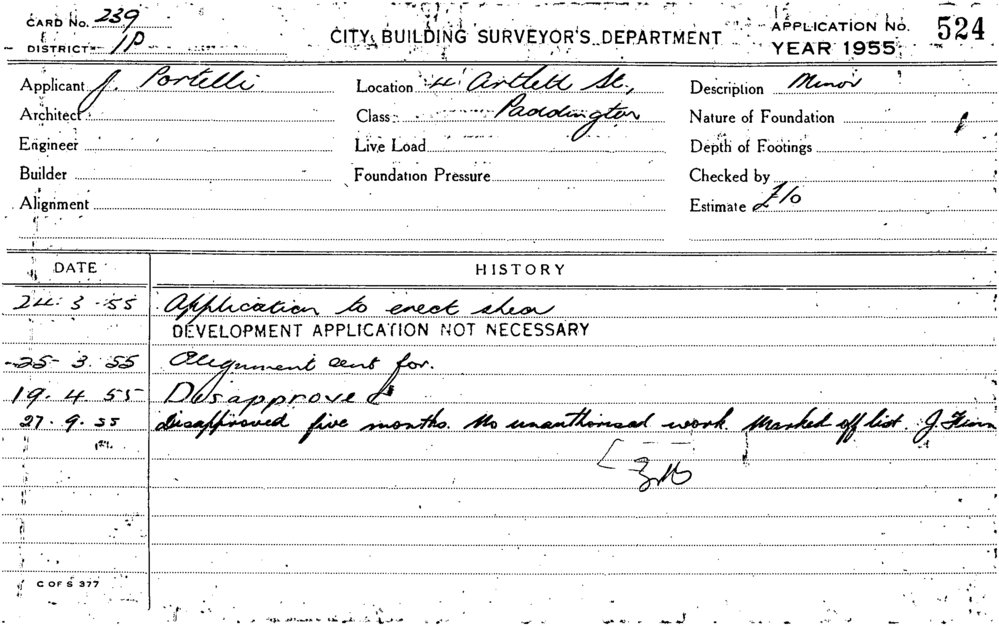 CARD No. 239
DISTRICT 1P
CITY BUILDING SURVEYOR'S DEPARTMENT
APPLICATION No. 524
YEAR 1955
Applicant J. Portelli
Location 4 Artlett St.,
Description Minor
Architect
Class Paddington
Nature of Foundation
Engineer
Live Load
Depth of Footings
Builder
Foundation Pressure
Checked by
Alignment
Estimate £10
DATE HISTORY
24. 3. 55 Application to erect shed
DEVELOPMENT APPLICATION NOT NECESSARY
25. 3. 55 Alignment sent for.
19. 4. 55 Disapproved
27. 9. 55 Disapproved five months. No unauthorised work. Marked off list. J. Finn
C OF S 377